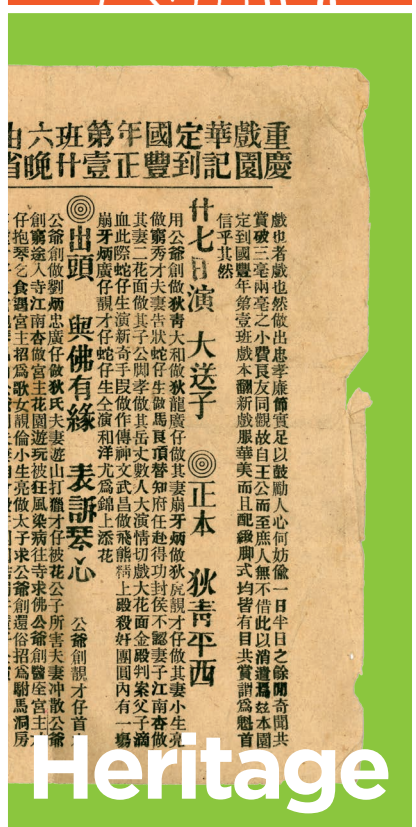 重慶戲園華記定到國豐年正第壹班廿六晚由省
戲也者戲也然做出忠孝廉節實足以鼓勵人心何妨偸一日半日之餘閒奇聞共
賞破三毫兩毫之小費良友同觀故自王公而至庶人無不借此以消遣焉玆本園
定到國豐年第壹班戲本翻新戲服華美而且配緞脚式均皆有目共賞謂爲魁首
信乎其然
廿七日演 大送子 ◎正本 狄靑平西
用公爺創做狄靑大和做狄龍廣仔做其妻崩牙炳做狄虎靚才仔做其妻小生亮
做窮秀才夫妻告狀蛇仔生做馬良頂替知府任赴得功封侯不認妻子江南杏做
其妻二花面做其子公脚孝做其岳丈數人大演情切戲大花面金殿判案父子滴
血此際蛇仔生演新奇手叚做作傳神文武昌做飛熊精上殿殺好團圓內有一塲
崩牙炳廣仔靚才仔蛇仔生仝演和洋尤爲錦上添花
◎出頭 與佛有緣 表訴琴心 公爺創靚才仔首
公爺創做劉炳忠廣仔做狄氏夫妻遊山打獵才仔被花公子所害夫妻冲散公爺
創窮途入寺江南杏做宮主花園遊玩被狂風染病往寺求佛公爺創醫痊宮主
仔抱琴乞食遇宮主招爲歌女靚倫小生亮做太子求公爺創還俗招爲駙馬洞房
Heritage